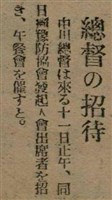 總督の招待
中川總督は來る十一日正午、同
日國防協會發起人會出席者を招
き、午餐會を催すと。